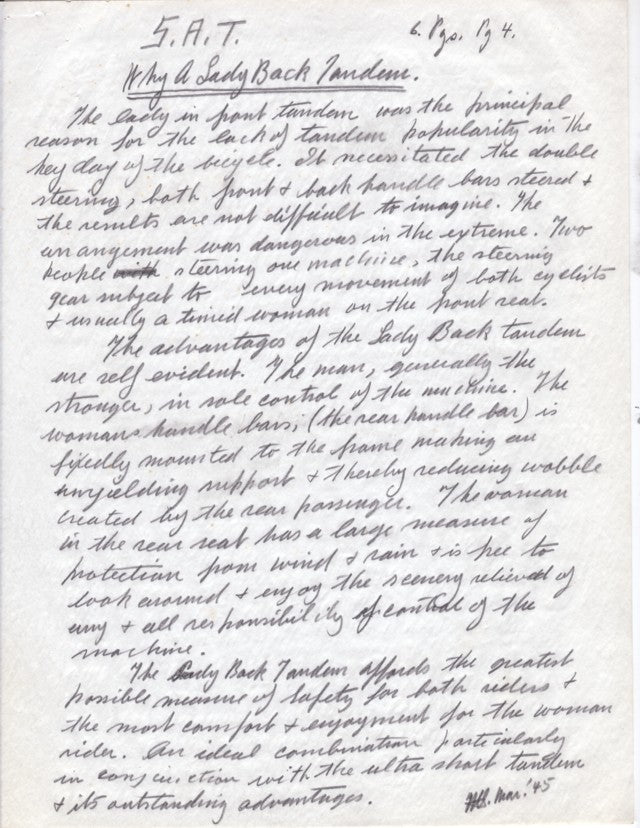 S.A.T.
6. Pgs. Pg 4.
Why A Lady Back Tandem.
The lady in front tandem was the principal
reason for the lack of tandem popularity in the
hey day of the bicycle. It necessitated the double
steering, both front & back handle bars steered &
the results are not difficult to imagine. The
arrangement was dangerous in the extreme. Two
people steering one machine, the steering
gear subject to every movement of both cyclists
& usually a timid woman on the front seat.
The advantages of the Lady Back tandem
are self evident. The man, generally the
stronger, in sole control of the machine. The
womans handle bars, (the rear handle bar) is
fixedly mounted to the frame making an
unyielding support & thereby reducing wobble
created by the rear passenger. The woman
in the rear seat has a large measure of
protection from wind & rain & is free to
look around & enjoy the scenery relieved of
any & all responsibility of control of the
machine.
The Lady Back Tandem affords the greatest
possible measure of safety for both riders &
the most comfort & enjoyment for the woman
rider. An ideal combination particularly
in conjunction with the ultra short tandem
& its outstanding advantages.
Mar. '45